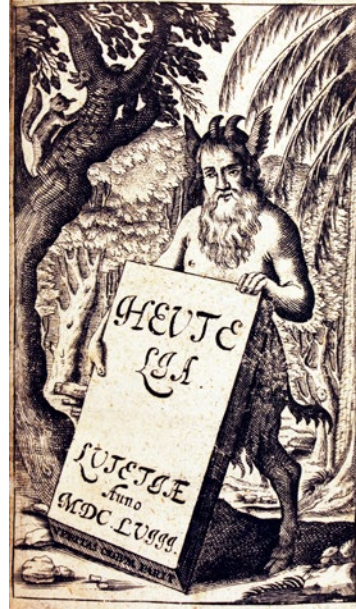 HEVTE
LIA.
LVTETIÆ
Anno
MDC.LVIII.
VERITAS ODIUM PARIT